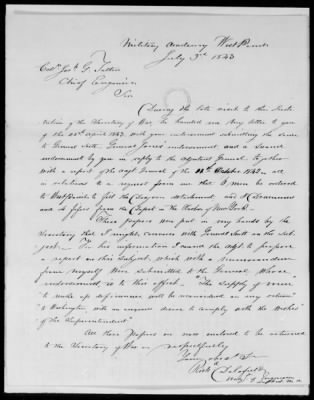 Military Academy West Point
July 3d 1843
Col. Jos. G. Totten
Chief Engineer
Sir
During the late visit to this Institution
of the Secretary of War, he handed me my letter to you
of the 22d April 1843 with your endorsement submitting the same
to General Scott, General Jones's endorsement and a second
endorsement by you in reply to the Adjutant General, together
with a report of the Adjt General of the October 1842 - all
in relation to a request from me that men be ordered
to West Point to fill the Dragoon detachment and 2 Drummers
and 2 fifers from the Depot in the Harbor of New York.
These papers were put in my hands by the
Secretary that I might converse with General Scott on the subject.
For his information I caused the Adjt to prepare
a report on this subject, which with a memorandum
from myself were submitted to the General whose
endorsement is to this effect. "The supply of men
to make up deficiencies will be on my return
to Washington, with an desire to comply with the wishes
of the Superintendent"
All these Papers are now enclosed to be returned
to the Secretary of War.
respectfully
Your Obt. St.
Richd Delafield
Major of Engineers